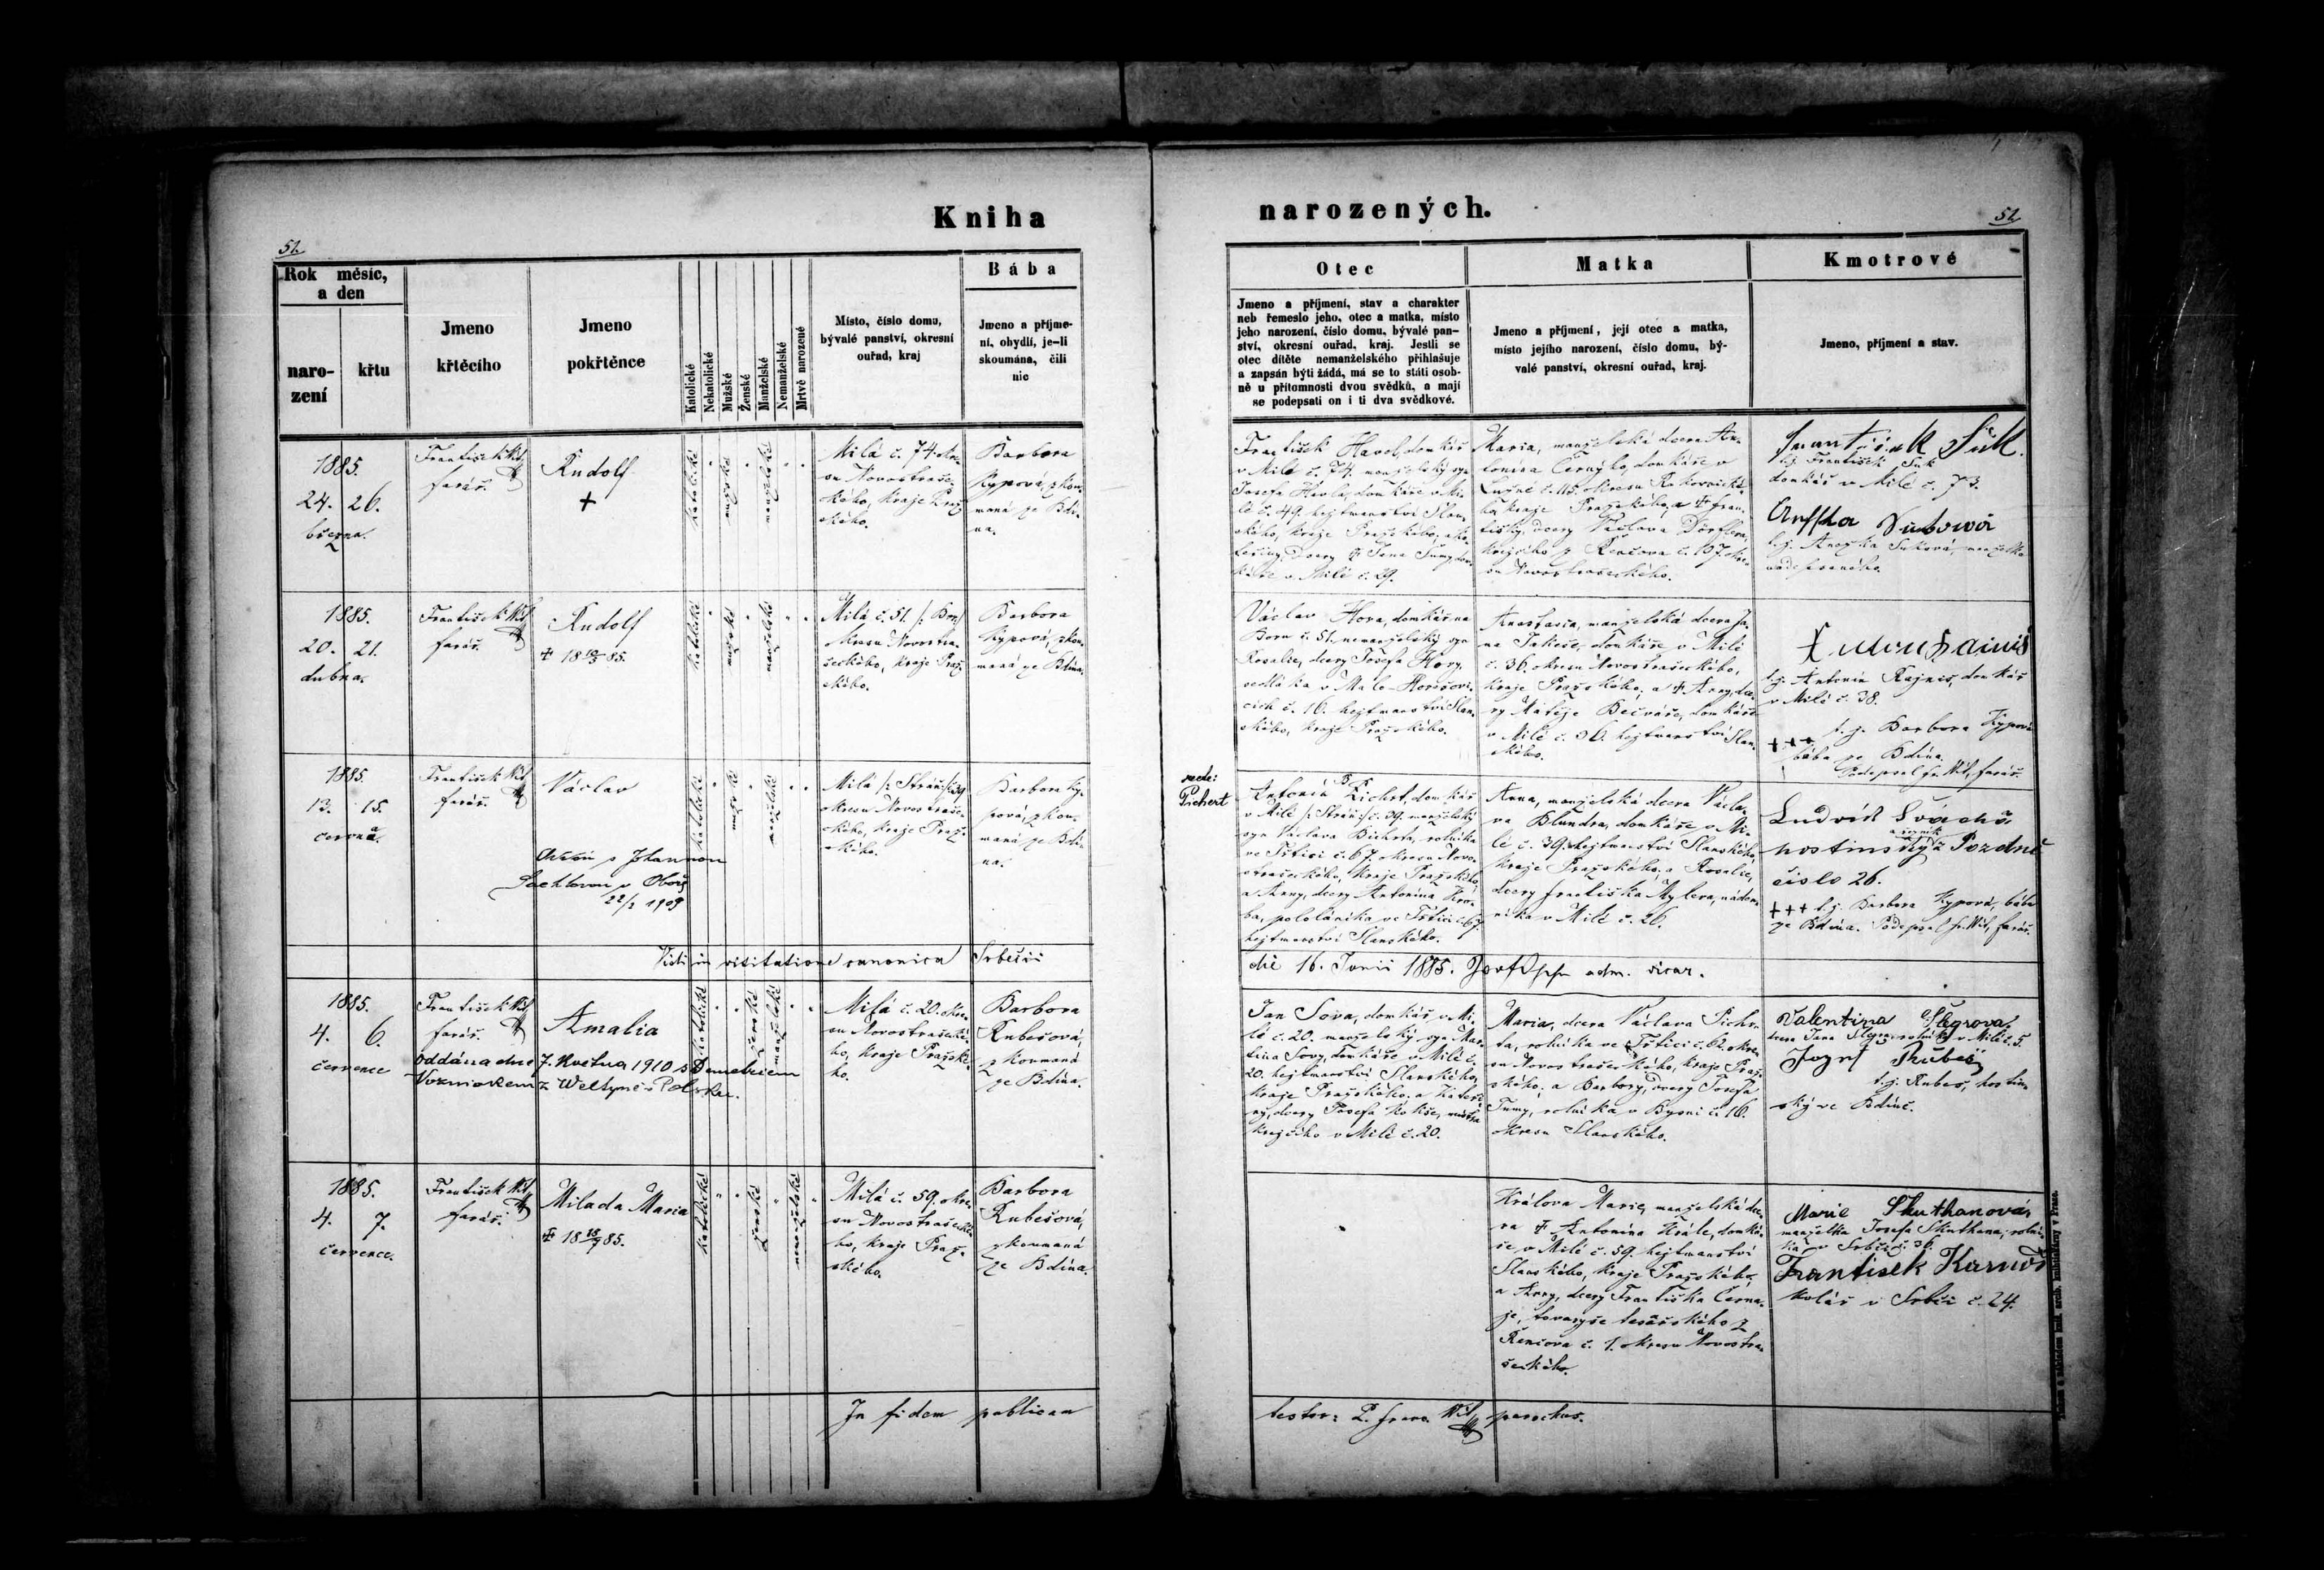 Kniha
51.
Rok měsíc,
a den
naro-
zení
křtu
Jmeno
křtěcího
Jmeno
pokřtěnce
Katolické
Nekatolické
Mužské
Ženské
Manželské
Nemanželské
Mrtvě narozené
Místo, číslo domu,
bývalé panství, okresní
ouřad, kraj
Bába
Jmeno a příjme-
ní, obydlí, je-li
skoumána, čili
nic
1885.
24. 26.
března.
František
farář.
Rudolf
+
katolické
mužské
manželské
Milá č. 74. okre-
su Novostraše-
ckého, kraje Praž-
ského.
Barbora
Kypová, zkou-
maná ze Bdí-
na.
1885.
20. 21.
dubna.
František
farář.
Rudolf
katolické
mužské
manželské
Milá č. 51. /: Bor/
okresu Novostra-
šeckého, kraje Praž-
ského.
Barbora
Kypová, zkou-
maná ze Bdína.
1885.
13. 15.
června.
František
farář.
Václav
katolické
mužské
manželské
Milá /: Stráň:/ č. 39
okresu Novostraše-
ckého, kraje Praž-
ského.
Barbora Ky-
pová, zkou-
maná ze Bdí-
na.
22/2 1909
Vidi in visitatione canonica Srbečii
1885.
4. 6.
července
František
farář.
Amalia
katolické
ženské
manželské
Milá č. 20. okre-
su Novostrašecké-
ho, kraje Pražské-
ho.
Barbora
Rubešová,
zkoumaná
ze Bdína.
oddána dne 7. května 1910 s Demetriem
Vozniakem z
1885.
4. 7.
července.
František
farář.
Milada Maria
katolické
ženské
nemanželské
Milá č. 59. okre-
su Novostrašecké-
ho, kraje Praž-
ského.
Barbora
Rubešová,
zkoumaná
ze Bdína.
In fidem publicam
narozených.
51.
Otec
Jmeno a příjmení, stav a charakter
neb řemeslo jeho, otec a matka, místo
jeho narození, číslo domu, bývalé pan-
ství, okresní ouřad, kraj. Jestli se
otec dítěte nemanželského přihlašuje
a zapsán býti žádá, má se to státi osob-
ně u přítomnosti dvou svědků, a mají
se podepsati on i ti dva svědkové.
Matka
Jmeno a příjmení, její otec a matka,
místo jejího narození, číslo domu, bý-
valé panství, okresní ouřad, kraj.
Kmotrové
Jmeno, příjmení a stav.
František Havel, domkář
v Milé č. 74. manželský syn
Josefa Havla, domkáře v Mi-
lé č. 49. hejtmanství Slan-
ského, kraje Pražského, a
dcery Jana
v Milé č. 29.
Maria, manželská dcera An-
tonína Černýho, domkáře v
Lužné č. 115. okresu Rakovnické-
ho, kraje Pražského, a Fran-
tišky, dcery Václava
krejčího z Řenčova č. 107. okre-
su Novostrašeckého.
František Suk.
t.j. František Suk
domkář v Milé č. 73.
t.j. Anežka Suková, manželka
nadepsaného.
Václav Hora, domkář na
Boru č. 51. nemanželský syn
Rosalie, dcery Josefa Hory,
sedláka v Malo-Hořešovi-
cích č. 16. hejtmanství Slan-
ského, kraje Pražského.
Anastasia, manželská dcera Ja-
na domkáře v Milé
č. 36. okresu Novostrašeckého,
kraje Pražského, a Anny, dce-
ry Matěje Bečváře, domkáře
v Milé č. 36. hejtmanství Slan-
ského.
t.j. Antonín Rajniš, domkář
v Milé č. 38.
+++ t.j. Barbora Kypová
bába ze Bdína.
Podepsal Fr. farář.
recte:
Pichert
Antonín Bichrt, domkář
v Milé /: Stráň:/ č. 39. manželský
syn Václava Bichrta, rolníka
ve Třtici č. 67. okresu Novo-
strašeckého, kraje Pražského,
a Anny, dcery Antonína
ve Třtici č. 67
hejtmanství Slanského.
Anna, manželská dcera Václa-
va domkáře v Mi-
lé č. 39. hejtmanství Slanského,
kraje Pražského, a Rosalie,
dcery Františka
v Milé č. 26.
Ludvík
hostinský z Pozdně
číslo 26.
+++ t.j. Barbora Kypová, bába
ze Bdína. Podepsal Fr. farář.
die 16. Junii 1885. adm. vicar.
Jan Sova, domkář v Mi-
lé č. 20. manželský syn Mar-
tina Sovy, domkáře v Milé č.
20. hejtmanství Slanského,
kraje Pražského, a Kateři-
ny, dcery Josefa
krejčího v Milé č. 20.
Maria, dcera Václava Pichr-
ta, rolníka ve Třtici č. 62. okre-
su Novostrašeckého, kraje Praž-
ského, a Barbory, dcery Josefa
Tumy, rolníka v Bysni č. 16.
okresu Slanského.
Valentina Šlégrova,
dcera Jana v Milé č. 5.
Jozef Rubeš
t.j. Rubeš, hostin-
ský ve Bdíně.
Králova Marie, manželská dce-
ra Antonína Krále, domká-
ře v Milé č. 59. hejtmanství
Slanského, kraje Pražského,
a Anny, dcery Františka
tovaryše tesařského z
Řenčova č. 1. okresu Novostra-
šeckého.
Marie Skuthanová,
manželka Josefa Skuthana, rolní-
ka v Srbči č. 36.
František
kolář v Srbči č. 24.
testor: P. Franc. parochus.